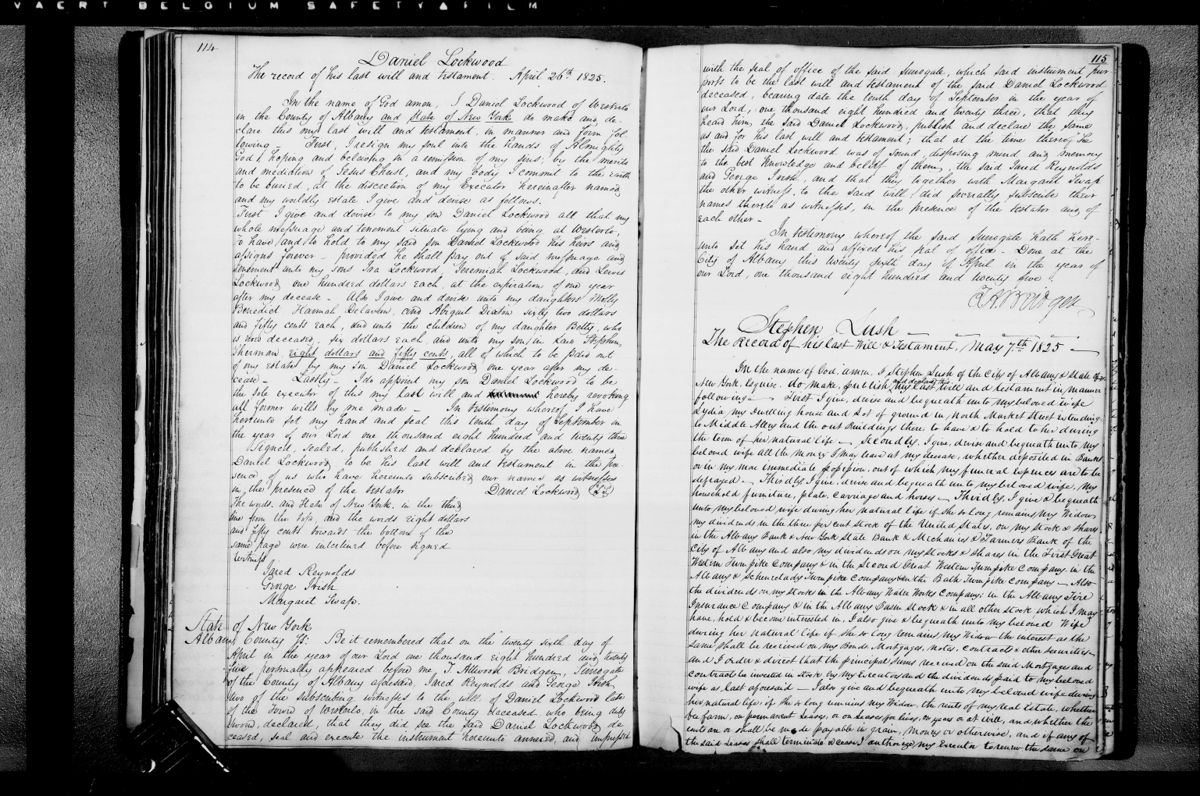 VAERT BELGIUM SAFETY FILM
114
Daniel Lockwood
The record of his last will and testament. April 26th 1825.
In the name of God amen, I Daniel Lockwood of Westerlo
in the County of Albany and State of New York do make and de-
clare this my last will and testament, in manner and form fol
lowing – First, I resign my soul into the hands of Almighty
God, hoping and believing in a remission of my sins, by the merits
and mediation of Jesus Christ, and my body I commit to the earth
to be buried, at the discretion of my Executor hereinafter named,
and my worldly estate I give and devise as follows.
First I give and devise to my son Daniel Lockwood all that my
whole messuage and tenement situate lying and being at Westerlo,
To have and to hold to my said son Daniel Lockwood his heirs and
assigns forever – provided he shall pay out of said messuage and
tenement unto my sons Isa Lockwood, Jeremiah Lockwood, and Lewis
Lockwood, one hundred dollars each, at the expiration of one year
after my decease – Also I give and devise unto my daughters Molly
Benedict Hannah Delavan, and Abigail Deaton sixty two dollars
and fifty cents each, and unto the children of my daughter Betty, who
is now deceased, six dollars each, and unto my son in law Stephen
Sherman, eight dollars and fifty cents, all of which to be paid out
of my estate by my son Daniel Lockwood, one year after my de-
cease – Lastly – I do appoint my son Daniel Lockwood to be
the sole executor of this my last will and hereby revoking
all former wills by me made – In testimony whereof I have
hereunto set my hand and seal this tenth day of September in
the year of our Lord one thousand eight hundred and twenty three
Signed, sealed, published and declared by the above named
Daniel Lockwood, to be his last will and testament in the pre
sence of us who have hereunto subscribed our names as witnesses
in the presence of the testator Daniel Lockwood LS
The words and State of New York, in the third
line from the top, and the words eight dollars
and fifty cents towards the bottom of the
same page were interlined before signed
Witness
Jared Reynolds
George Irish
Margaret Swap.
State of New York
Albany County Ss: Be it remembered that on the twenty sixth day of
April in the year of our Lord one thousand eight hundred and twenty
five personally appeared before me T. Attwood Bridgen, Surrogate
of the County of Albany aforesaid, Jared Reynolds and George Irish,
two of the subscribing witnesses to the will of Daniel Lockwood late
of the Town of Westerlo, in the said County, deceased who being duly
sworn, declared, that they did see the said Daniel Lockwood, de
ceased, seal and execute the instrument hereunto annexed, and impressed
115
with the seal of office of the said Surrogate, which said instrument pur
ports to be the last will and testament of the said Daniel Lockwood
deceased, bearing date the tenth day of September in the year of
our Lord, one thousand eight hundred and twenty three, that they
heard him, the said Daniel Lockwood, publish and declare the same
as and for his last will and testament; that at the time thereof he
the said Daniel Lockwood was of sound, disposing mind and memory
to the best knowledge and belief of them, the said Jared Reynolds
and George Irish, and that they together with Margaret Swap
the other witness, to the said will, did severally subscribe their
names thereto as witnesses, in the presence of the testator and of
each other –
In testimony whereof the said Surrogate hath here-
unto set his hand and affixed his seal of office – Done at the
City of Albany this twenty sixth day of April in the year of
our Lord, one thousand eight hundred and twenty five.
T A Bridgen
Stephen Lush
The Record of his last Will & Testament, May 7th 1825
In the name of God, amen, I Stephen Lush of the City of Albany & State of
New York, Esquire, do make, publish and declare this my last will and testament in manner
following – First I give, devise and bequeath unto my beloved wife
Lydia my dwelling house and Lot of ground in North Market Street extending
to Middle Alley and the out Buildings there to have & to hold to her during
the term of her natural life – Secondly, I give, devise and bequeath unto my
beloved wife all the money I may leave at my decease, whether deposited in Banks
or in my own immediate possession, out of which my funeral expences are to be
defrayed – Thirdly I give, devise and bequeath unto my beloved wife, my
household furniture, plate, carriage and horses – Thirdly, I give & bequeath
unto my beloved wife during her natural life if she so long remains my Widow
my dividends in the three per cent Stock of the United States, on my Stock & shares
in the Albany Bank & New York State Bank & Mechanics & Farmers Bank of the
City of Albany and also my dividends on my Stocks & Shares in the First Great
Western Turnpike Company & in the Second Great Western Turnpike Company in the
Albany & Schenectady Turnpike Company & in the Bath Turnpike Company – Also
the dividends on my Stock in the Albany Water Works Company, in the Albany Fire
Insurance Company & in the Albany Basin Stock & in all other Stock which I may
have, hold & become interested in, I also give & bequeath unto my beloved Wife
during her natural life if she so long remains my Widow the interest as the
same shall be received on my Bonds, Mortgages, notes, Contracts & other securities
and I order & direct that the principal sums received on the said Mortgages and
Contracts be invested in Stock by my Executors and the dividends paid to my beloved
wife as last aforesaid – I also give and bequeath unto my beloved wife during
her natural life, if she so long remains my Widow, the rents of my real Estate, whether
be farm, or permanent Leases, or on Leases for lives, or years or at will, and whether the
rents are or shall be made payable in grain, money or otherwise, and if any of
the said Leases shall terminate & cease I authorize my Executor to renew the same on